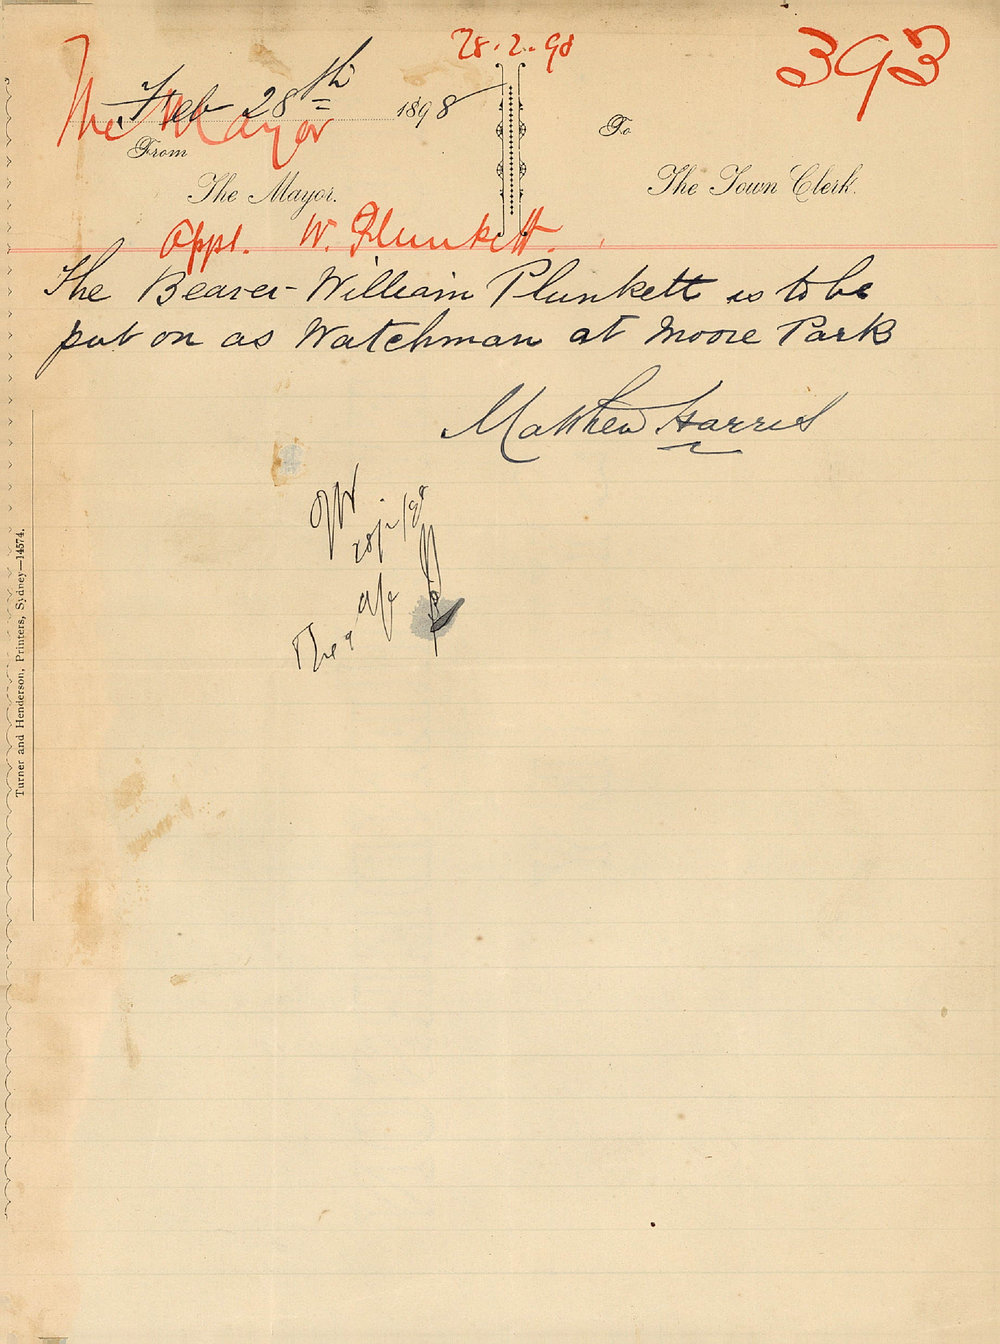 28.2.98
393
The Mayor
Feb 28th 1898
From
The Mayor.
To
The Town Clerk.
Appt. W. Plunkett.
The Bearer - William Plunkett is to be
put on as Watchman at Moore Park
Matthew Harris
28/2/98
The
Turner and Henderson, Printers, Sydney—14574.